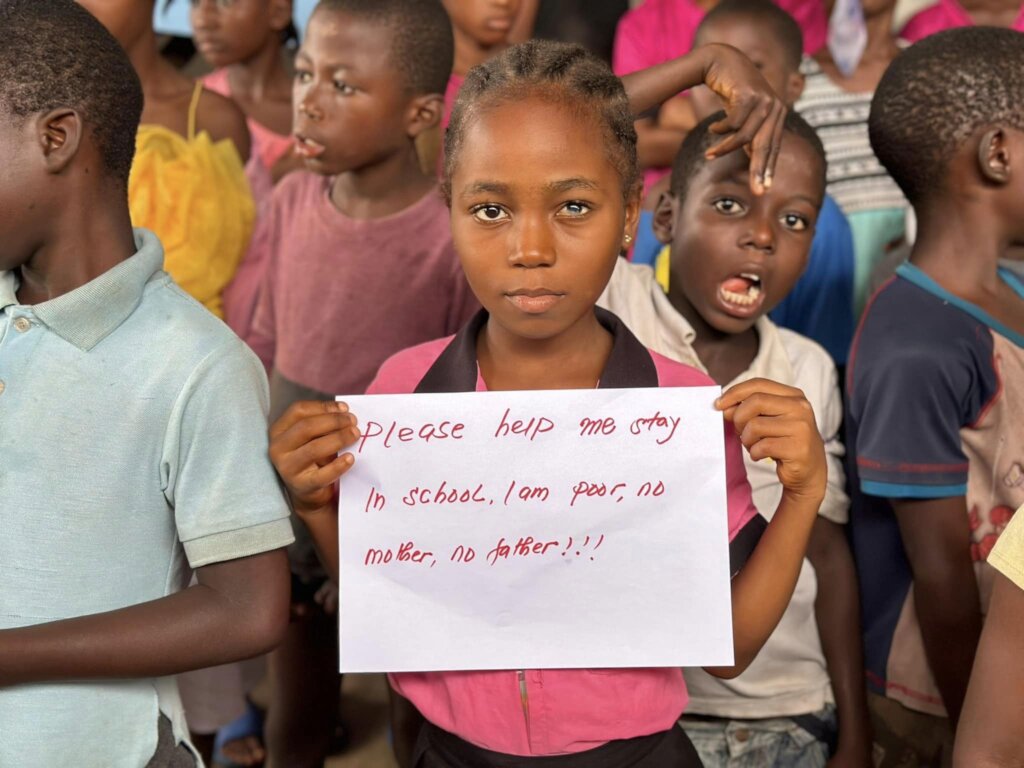 Please help me stay
In school. I am poor, no
mother, no father!!!